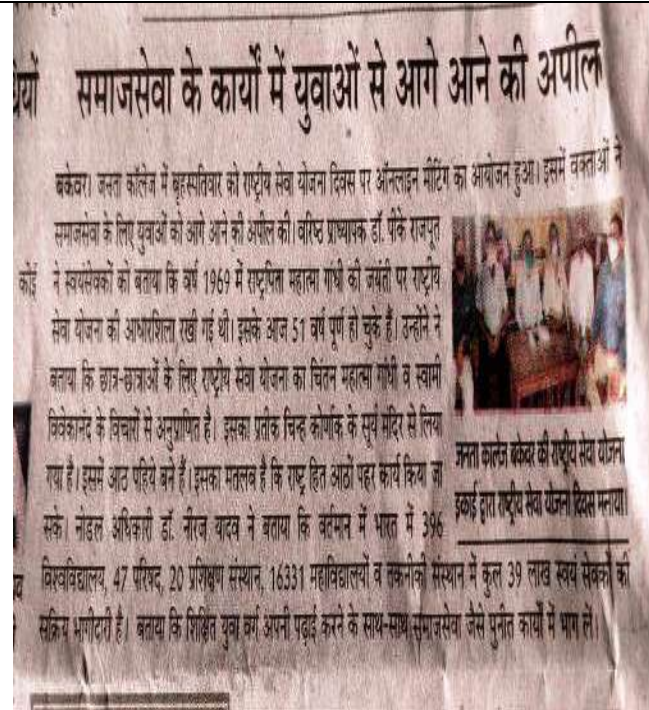 समाजसेवा के कार्यों में युवाओं से आगे आने की अपील
बकेवर। जनता कॉलेज में बृहस्पतिवार को राष्ट्रीय सेवा योजना दिवस पर ऑनलाइन मीटिंग का आयोजन हुआ। इसमें वक्ताओं ने
समाजसेवा के लिए युवाओं को आगे आने की अपील की। वरिष्ठ प्राध्यापक डॉ. पीके राजपूत
ने स्वयंसेवकों को बताया कि वर्ष 1969 में राष्ट्रपिता महात्मा गांधी की जयंती पर राष्ट्रीय
सेवा योजना की आधारशिला रखी गई थी। इसके आज 51 वर्ष पूर्ण हो चुके हैं। उन्होंने ने
बताया कि छात्र-छात्राओं के लिए राष्ट्रीय सेवा योजना का चिंतन महात्मा गांधी व स्वामी
विवेकानंद के विचारों से अनुप्राणित है। इसका प्रतीक चिन्ह कोर्णाक के सूर्य मंदिर से लिया
गया है। इसमें आठ पहिये बने हैं। इसका मतलब है कि राष्ट्र हित आठों पहर कार्य किया जा
सके। नोडल अधिकारी डॉ. नीरज यादव ने बताया कि वर्तमान में भारत में 396
विश्वविद्यालय, 47 परिषद, 20 प्रशिक्षण संस्थान, 16331 महाविद्यालयों व तकनीकी संस्थान में कुल 39 लाख स्वयं सेवकों की
सक्रिय भागीदारी है। बताया कि शिक्षित युवा वर्ग अपनी पढ़ाई करने के साथ-साथ समाजसेवा जैसे पुनीत कार्यों में भाग लें।
जनता कालेज बकेवर की राष्ट्रीय सेवा योजना
इकाई द्वारा राष्ट्रीय सेवा योजना दिवस मनाया।
कोई